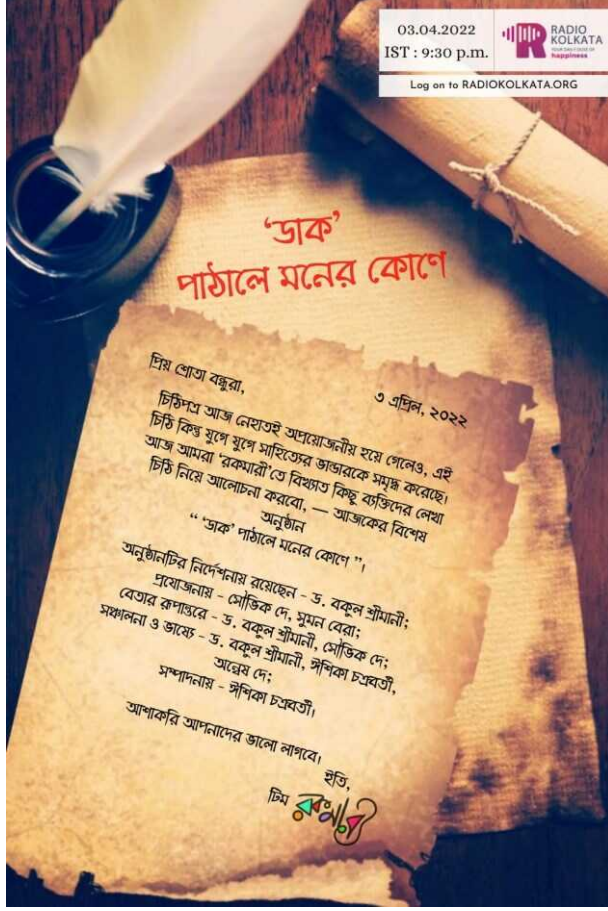 03.04.2022
IST : 9:30 p.m.
RADIO
KOLKATA
happiness
Log on to RADIOKOLKATA.ORG
‘ডাক’
পাঠালে মনের কোণে
প্রিয় শ্রোতা বন্ধুরা,
৩ এপ্রিল, ২০২২
চিঠিপত্র আজ নেহাতই অপ্রয়োজনীয় হয়ে গেলেও, এই
চিঠি কিন্তু যুগে যুগে সাহিত্যের ভান্ডারকে সমৃদ্ধ করেছে।
আজ আমরা ‘রকমারী’তে বিখ্যাত কিছু ব্যক্তিদের লেখা
চিঠি নিয়ে আলোচনা করবো, — আজকের বিশেষ
অনুষ্ঠান
“ ‘ডাক’ পাঠালে মনের কোণে ”।
অনুষ্ঠানটির নির্দেশনায় রয়েছেন - ড. বকুল শ্রীমানী;
প্রযোজনায় - সৌভিক দে, সুমন বেরা;
বেতার রূপান্তরে - ড. বকুল শ্রীমানী, সৌভিক দে;
সঞ্চালনা ও ভাষ্যে - ড. বকুল শ্রীমানী, ঈশিকা চক্রবর্তী,
অন্বেষ দে;
সম্পাদনায় - ঈশিকা চক্রবর্তী।
আশাকরি আপনাদের ভালো লাগবে।
ইতি,
টিম রকমারী